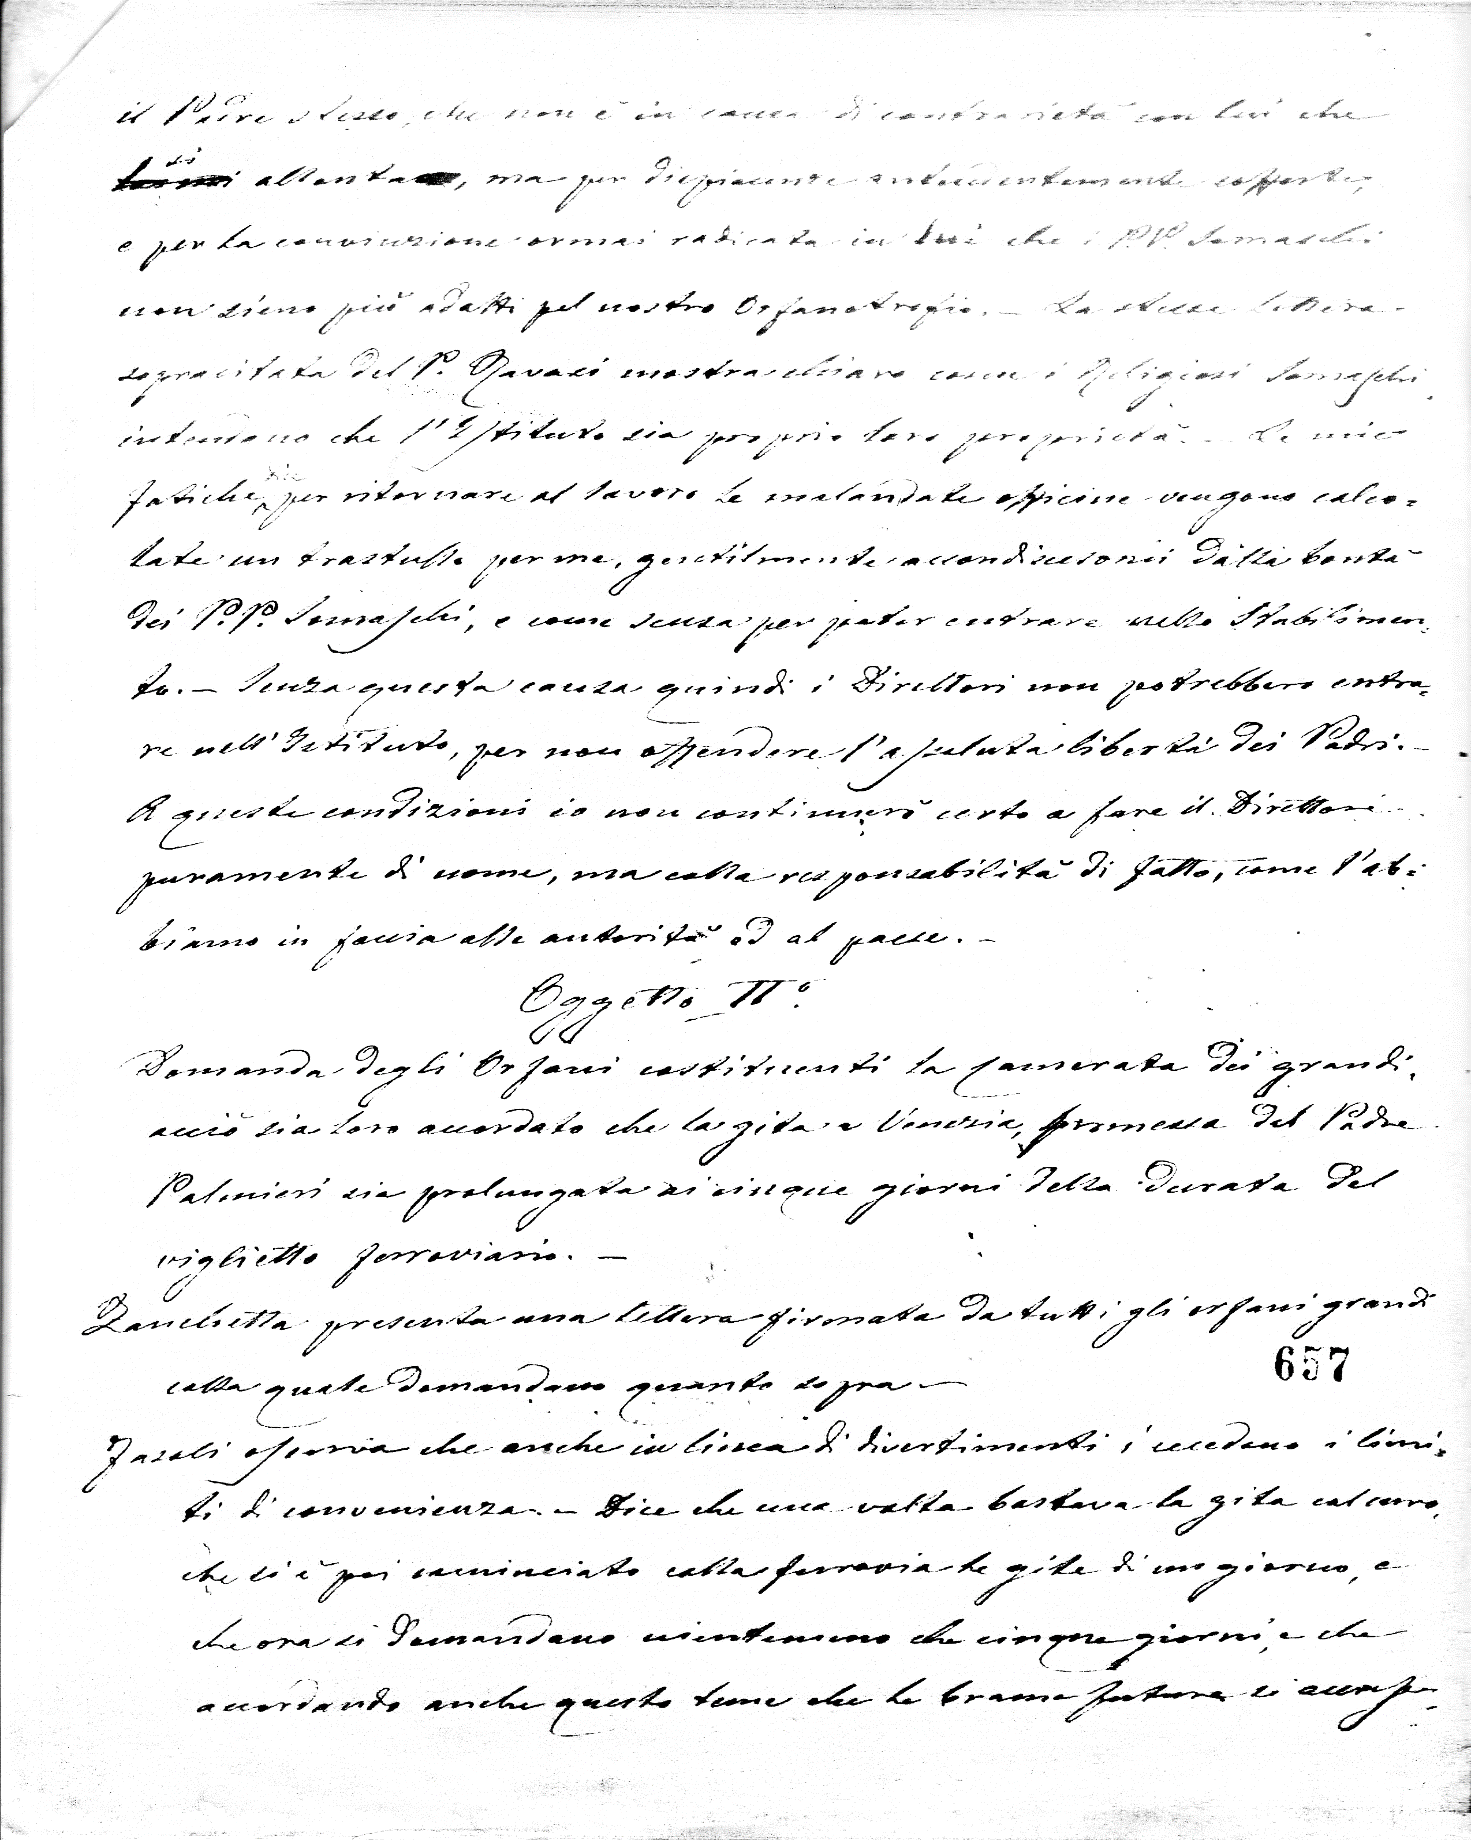 il Padre stesso, che non è in causa di contrarietà con lui che
si allonta, ma per dispiacenze antecedentemente sofferte,
e per la convinzione ormai radicata in lui che i P.P. Somaschi
non sieno più adatti pel nostro Orfanotrofio. — La stessa lettera
sopracitata del P. Ravasi mostra chiaro come i Religiosi Somaschi
intendono che l'Istituto sia proprio loro proprietà. — Le mie
fatiche, dic per ritornare al lavoro le malandate officine vengono calco=
late un trastullo per me, gentilmente accondiscesomi dalla bontà
dei P.P. Somaschi, e come scusa per poter entrare nello Stabilimen=
to. — Senza questa causa quindi i Direttori non potrebbero entra=
re nell'Istituto, per non offendere l'assoluta libertà dei Padri. —
A queste condizioni io non continuerò certo a fare il Direttore
puramente di nome, ma colla responsabilità di fatto, come l'ab=
biamo in faccia alle autorità ed al paese. —
Oggetto II°.
Domanda degli Orfani costituenti la Camerata dei grandi,
acciò sia loro accordato che la gita a Venezia, promessa dal Padre
Palmieri sia prolungata ai cinque giorni della durata del
viglietto ferroviario. —
Zanchetta presenta una lettera firmata da tutti gli orfani grandi
657
colla quale domandano quanto sopra —
Fasoli osserva che anche in linea di divertimenti i eccedono i limi=
ti di convenienza. — Dice che una volta bastava la gita col carro,
che si è poi cominciato colla ferrovia le gite di un giorno, e
che ora si domandano nientemeno che cinque giorni, e che
accordando anche questo teme che le brame future si accresce=